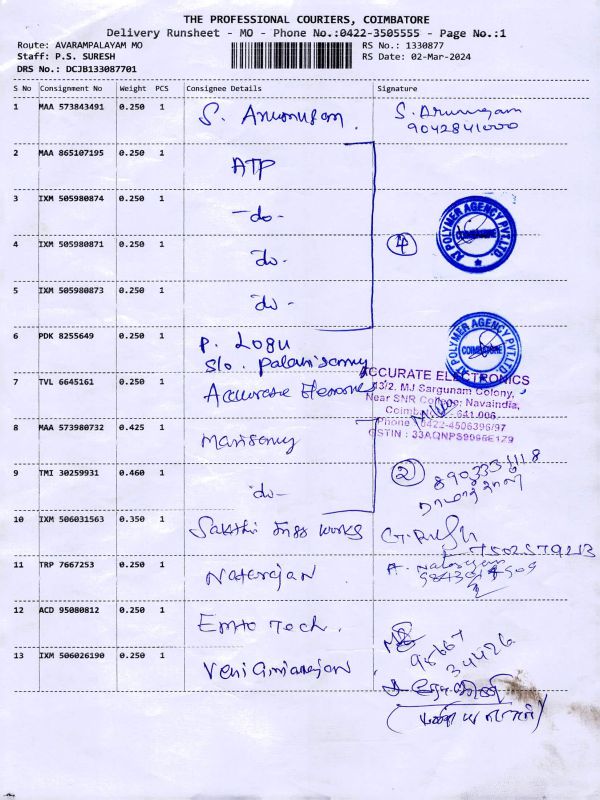 THE PROFESSIONAL COURIERS, COIMBATORE
Delivery Runsheet - MO - Phone No.:0422-3505555 - Page No.:1
Route: AVARAMPALAYAM MO
RS No.: 1330877
Staff: P.S. SURESH
RS Date: 02-Mar-2024
DRS No.: DCJB133087701
S No Consignment No Weight PCS Consignee Details Signature
1 MAA 573843491 0.250 1 S. Arumugam S. Arumugam
9042841000
2 MAA 865107195 0.250 1 ATP
3 IXM 505980874 0.250 1 -do-
4 IXM 505980871 0.250 1 -do- 4
5 IXM 505980873 0.250 1 do-
AT POLYMER AGENCY PVT.LTD.
COIMBATORE
6 PDK 8255649 0.250 1 P. Logu
S/o. Palanisamy
AT POLYMER AGENCY PVT.LTD.
COIMBATORE
7 TVL 6645161 0.250 1 Accurate
ACCURATE ELECTRONICS
43/2, MJ Sargunam Colony,
Near SNR College, Navaindia,
641 006
Phone : 0422-4506396/97
GSTIN : 33AQNPS9096E1Z9
8 MAA 573980732 0.425 1 Marisamy
9 TMI 30259931 0.460 1 do- 2
10 IXM 506031563 0.350 1 Sakthi Engg Works
7502579213
11 TRP 7667253 0.250 1 Natarajan A. Natarajan
12 ACD 95080812 0.250 1 Tech.
95667
34426
13 IXM 506026190 0.250 1